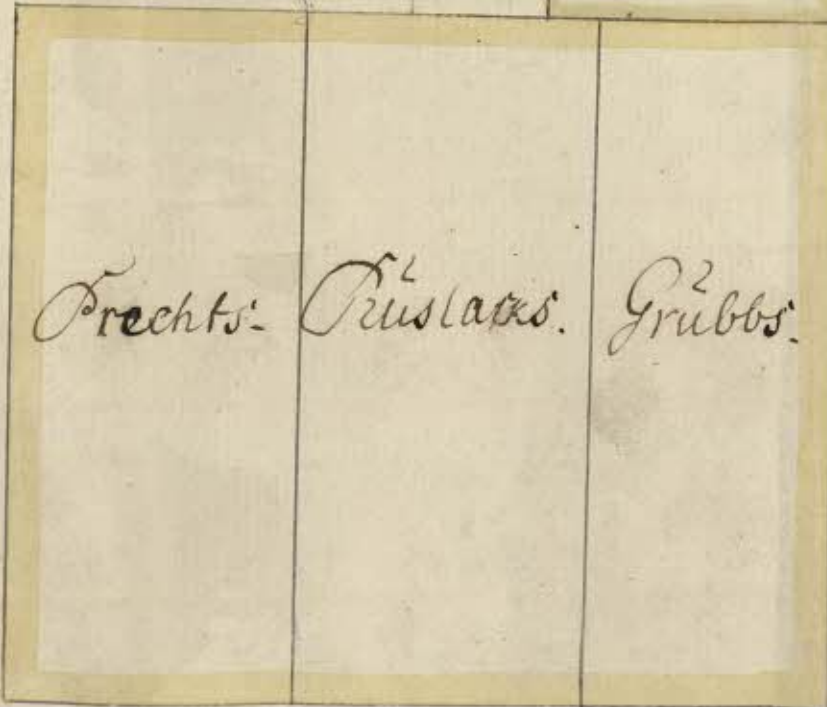 Prechts.
Rüslacks.
Grubbs.